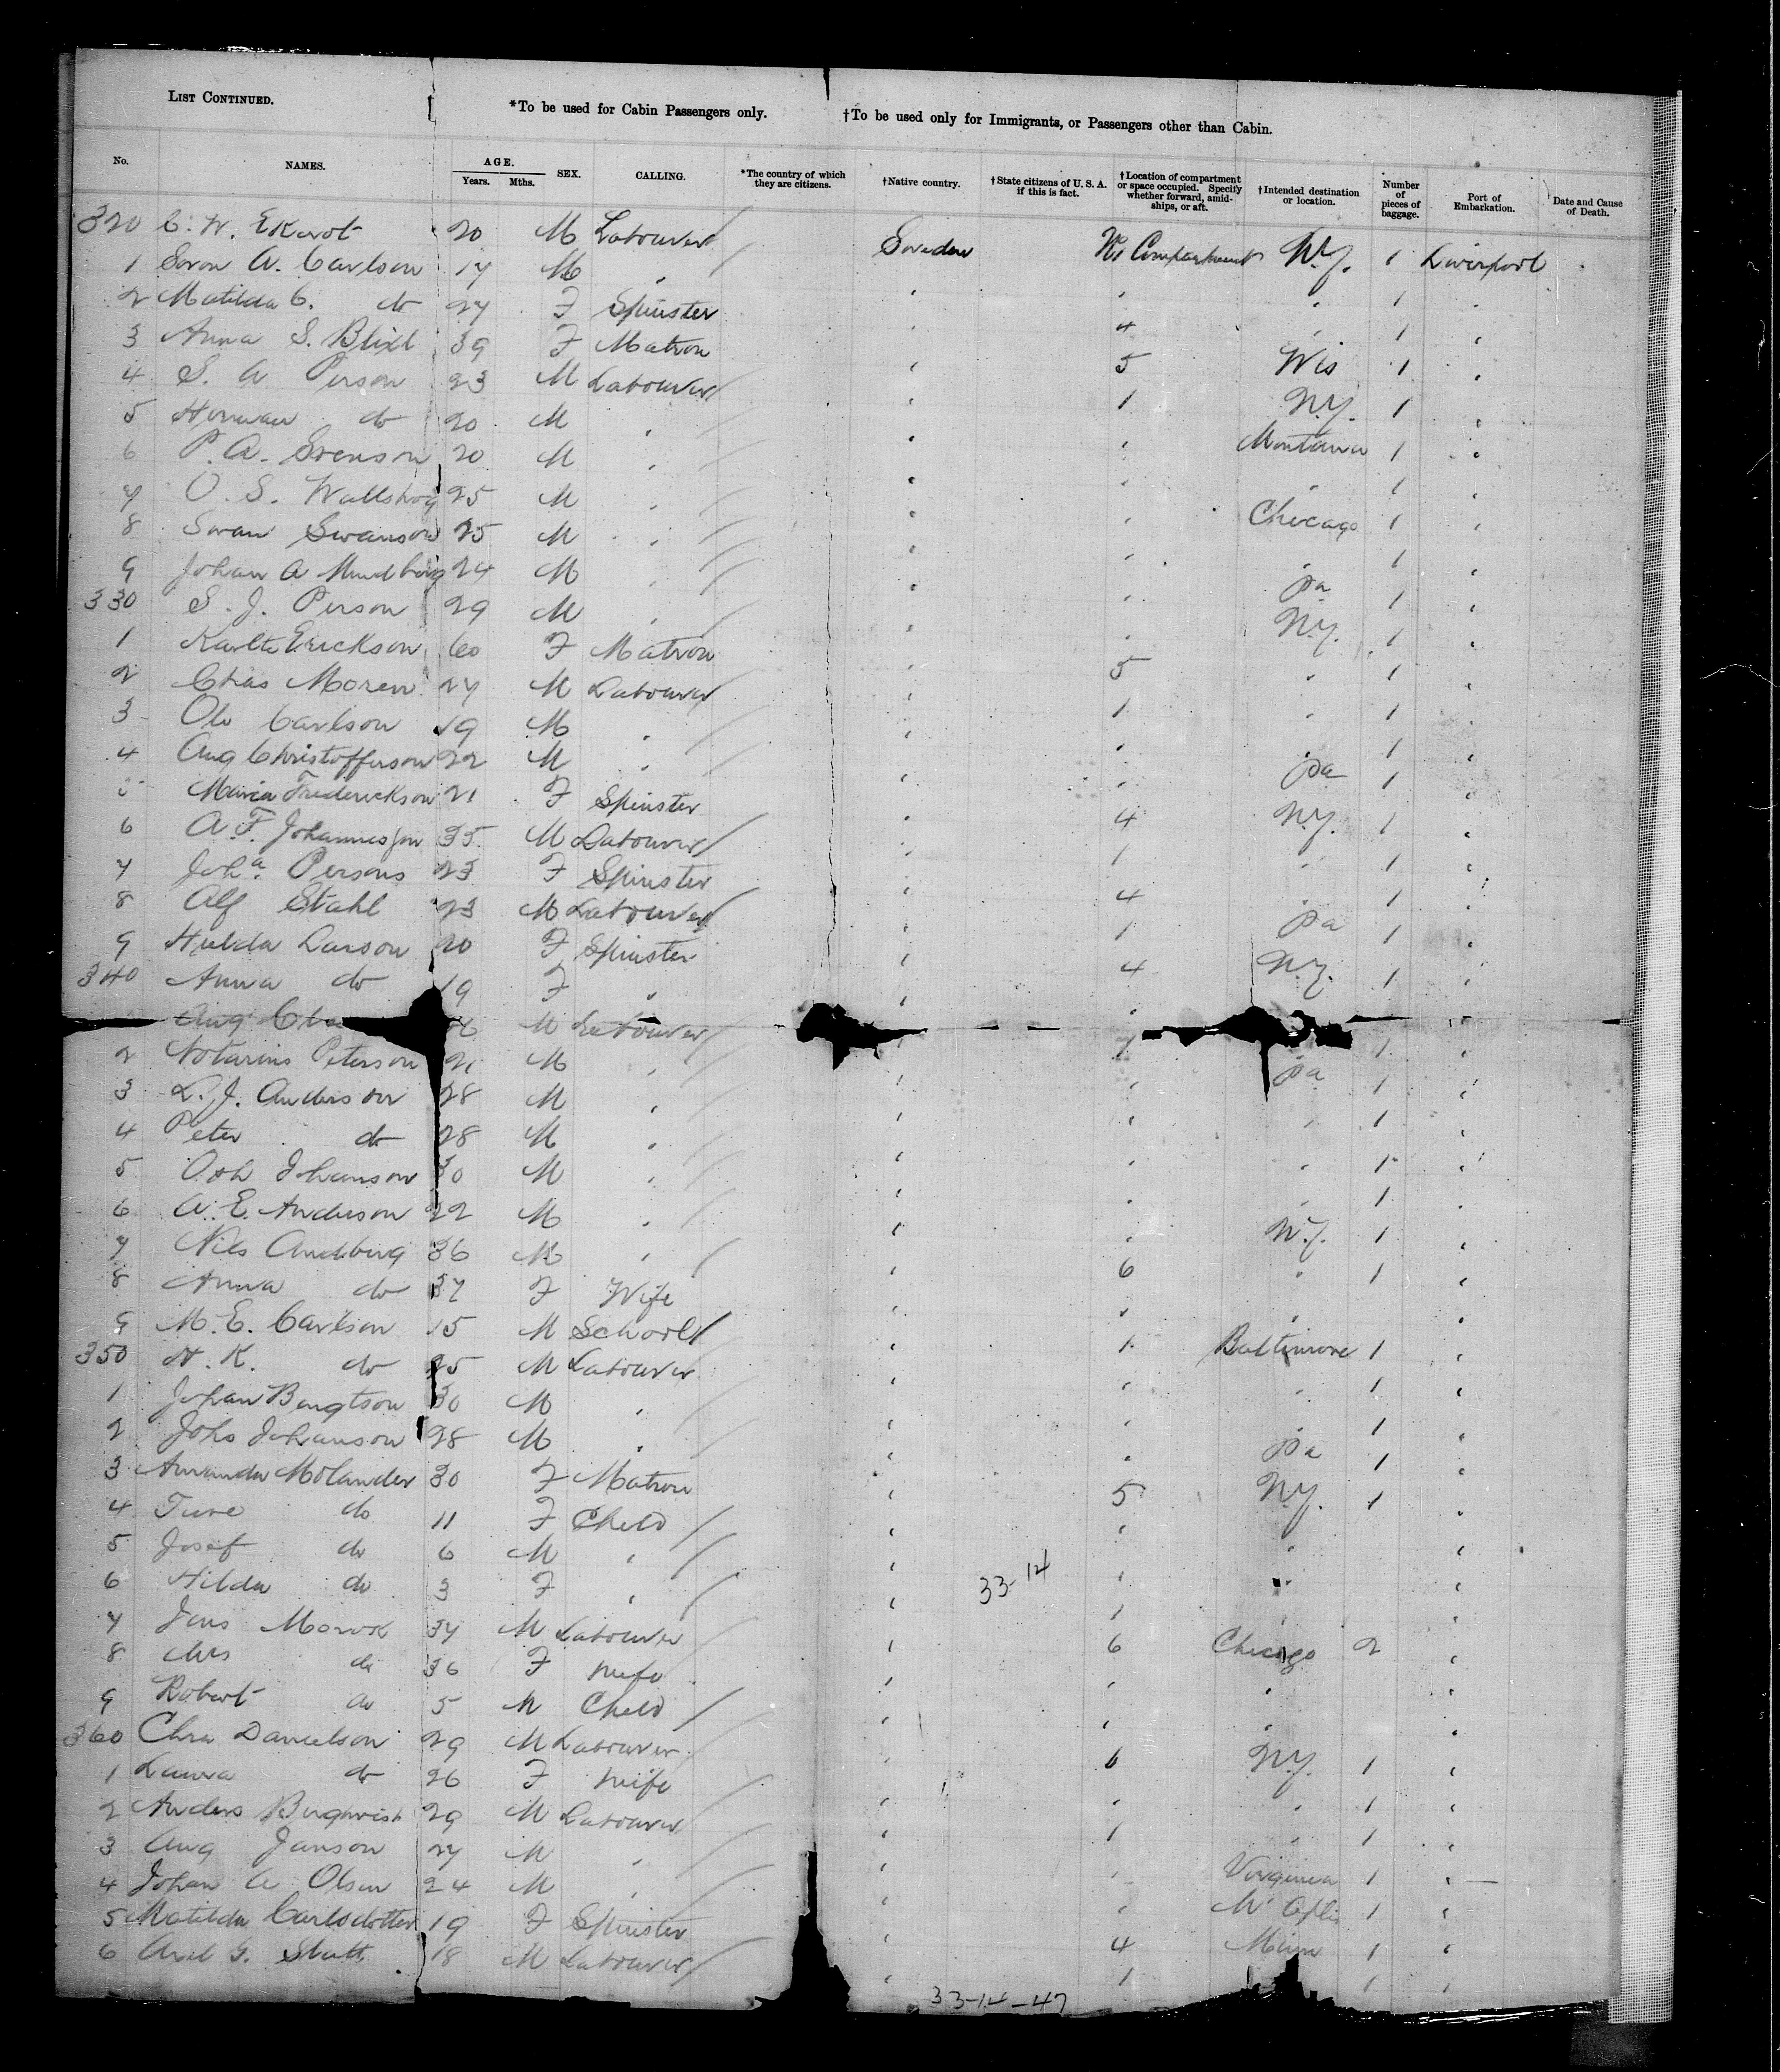 LIST CONTINUED. *To be used for Cabin Passengers only. †To be used only for Immigrants, or Passengers other than Cabin.
No. NAMES. AGE. Years. Mths. SEX. CALLING. *The country of which they are citizens. †Native country. †State citizens of U. S. A. if this is fact. †Location of compartment or space occupied. Specify whether forward, amidships, or aft. †Intended destination or location. Number of pieces of baggage. Port of Embarkation. Date and Cause of Death.
320 C. W. 20 M Labourer Sweden No 1 Compartment N.Y. 1 Liverpool
1 A. Carlson 17 M " " " " 1 "
2 Matilda C. do 27 F Spinster " 4 " 1 "
3 Anna S. Blixt 39 F Matron " 5 Wis 1 "
4 S. A Person 23 M Labourer " 1 N.Y. 1 "
5 Herman do 20 M " " " Montana 1 "
6 P. A. Svenson 20 M " " " " 1 "
7 O. S. 25 M " " " Chicago 1 "
8 Swan Swanson 25 M " " " " 1 "
9 Johan A 24 M " " " Pa 1 "
330 S. J. Person 29 M " " " N.Y. 1 "
1 Erickson 60 F Matron " 5 " 1 "
2 Chas Moren 27 M Labourer " 1 " 1 "
3 Ole Carlson 19 M " " " " 1 "
4 Aug Christofferson 22 M " " " Pa 1 "
5 Maria Frederickson 21 F Spinster " 4 N.Y. 1 "
6 A. F. Johannesson 35 M Labourer " 1 " 1 "
7 Joha Persons 23 F Spinster " 4 " 1 "
8 Alf Stahl 23 M Labourer " 1 Pa 1 "
9 Hulda Larson 20 F Spinster " 4 N.Y. 1 "
340 Anna do 19 F " " " "
Aug M Labourer 1 1 "
2 Peterson 21 M " " " Pa 1 "
3 L. J. Anderson 28 M " " " " 1 "
4 Peter do 28 M " " " " 1 "
5 Johanson 30 M " " " " 1 "
6 A. E. Anderson 22 M " " " N.Y. 1 "
7 Nils 36 M " " 6 " 1 "
8 Anna do 37 F Wife " " "
9 M. E. Carlson 15 M School " 1 Baltimore 1 "
350 H. K. do 25 M Labourer " " " 1 "
1 Johan Bengtson 30 M " " " " 1 "
2 Johs Johanson 28 M " " " Pa 1 "
3 Amanda Molander 30 F Matron " 5 N.Y. 1 "
4 Ture do 11 F Child " " " "
5 Josef do 6 M " " " " "
6 Hilda do 3 F " " 33-14 " " "
7 Jens 37 M Labourer " 6 Chicago 2 "
8 Mrs do 36 F Wife " " " "
9 Robert do 5 M Child " " " "
360 Danielson 29 M Labourer " 6 N.Y. 1 "
1 Laura do 26 F Wife " " " 1 "
2 Anders 29 M Labourer " 1 " 1 "
3 Aug Janson 27 M " " " Virginia 1 "
4 Johan A Olson 24 M " " " 1 "
5 Matilda Carlsdotter 19 F Spinster " 4 1 "
6 Axel G. 18 M Labourer " 1 1 "
33-14-47